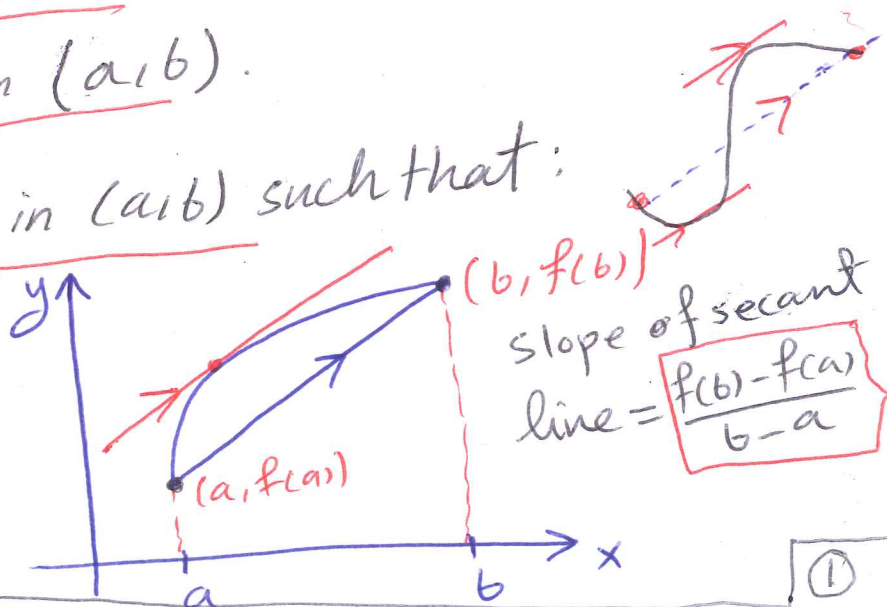 (a,b).
in (a,b) such that:
y
(b, f(b))
slope of secant
line = f(b)-f(a) / b-a
(a, f(a))
x
a
b
1